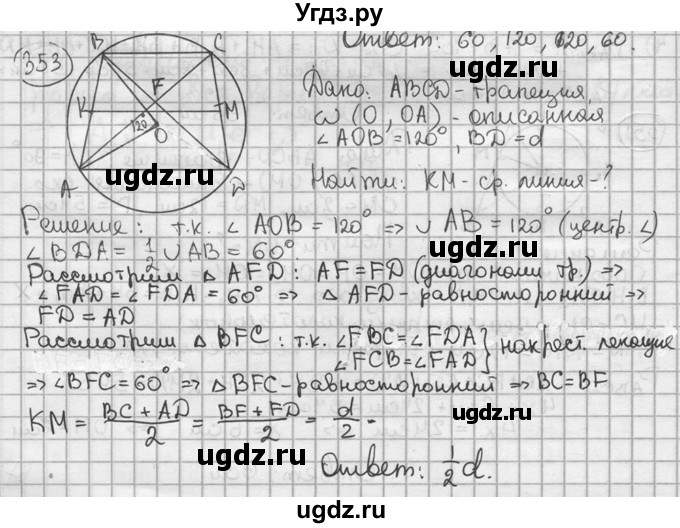 Угдз.ру
353
Ответ: 60, 120, 120, 60.
B C
F
K M
120°
O
A D
Дано: ABCD - трапеция,
ω (O, OA) - описанная
∠AOB = 120°, BD = d
Найти: KM - ср. линия - ?
Решение: т.к. ∠ AOB = 120° => ∪ AB = 120° (центр. ∠)
∠ BDA = 1/2 ∪ AB = 60°
Рассмотрим △ AFD: AF = FD (диагонали тр.) =>
∠ FAD = ∠ FDA = 60° => △ AFD - равносторонний =>
FD = AD
Рассмотрим △ BFC: т.к. ∠FBC = ∠FDA
∠FCB = ∠FAD } накрест лежащие
=> ∠BFC = 60° => △ BFC - равносторонний => BC = BF
KM = (BC + AD)/2 = (BF + FD)/2 = d/2 -
Ответ: 1/2 d.
ugdz.ru
ugdz.ru
ugdz.ru
ugdz.ru
ugdz.ru
ugdz.ru
ugdz.ru
Угдз.ру